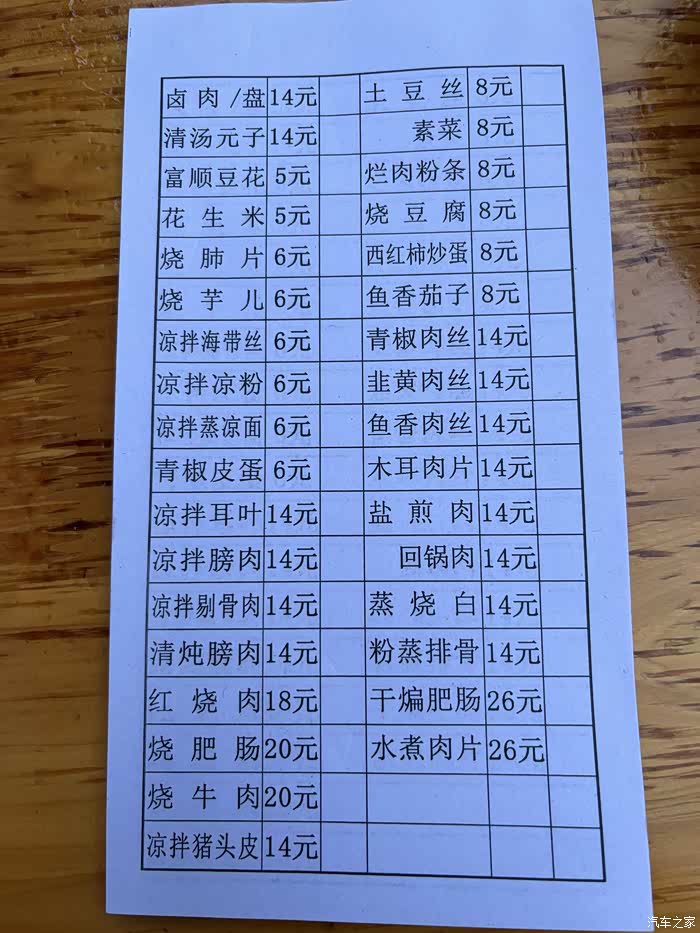 卤肉/盘 14元 土豆丝 8元
清汤元子 14元 素菜 8元
富顺豆花 5元 烂肉粉条 8元
花生米 5元 烧豆腐 8元
烧肺片 6元 西红柿炒蛋 8元
烧芋儿 6元 鱼香茄子 8元
凉拌海带丝 6元 青椒肉丝 14元
凉拌凉粉 6元 韭黄肉丝 14元
凉拌蒸凉面 6元 鱼香肉丝 14元
青椒皮蛋 6元 木耳肉片 14元
凉拌耳叶 14元 盐煎肉 14元
凉拌膀肉 14元 回锅肉 14元
凉拌剔骨肉 14元 蒸烧白 14元
清炖膀肉 14元 粉蒸排骨 14元
红烧肉 18元 干煸肥肠 26元
烧肥肠 20元 水煮肉片 26元
烧牛肉 20元
凉拌猪头皮 14元
汽车之家